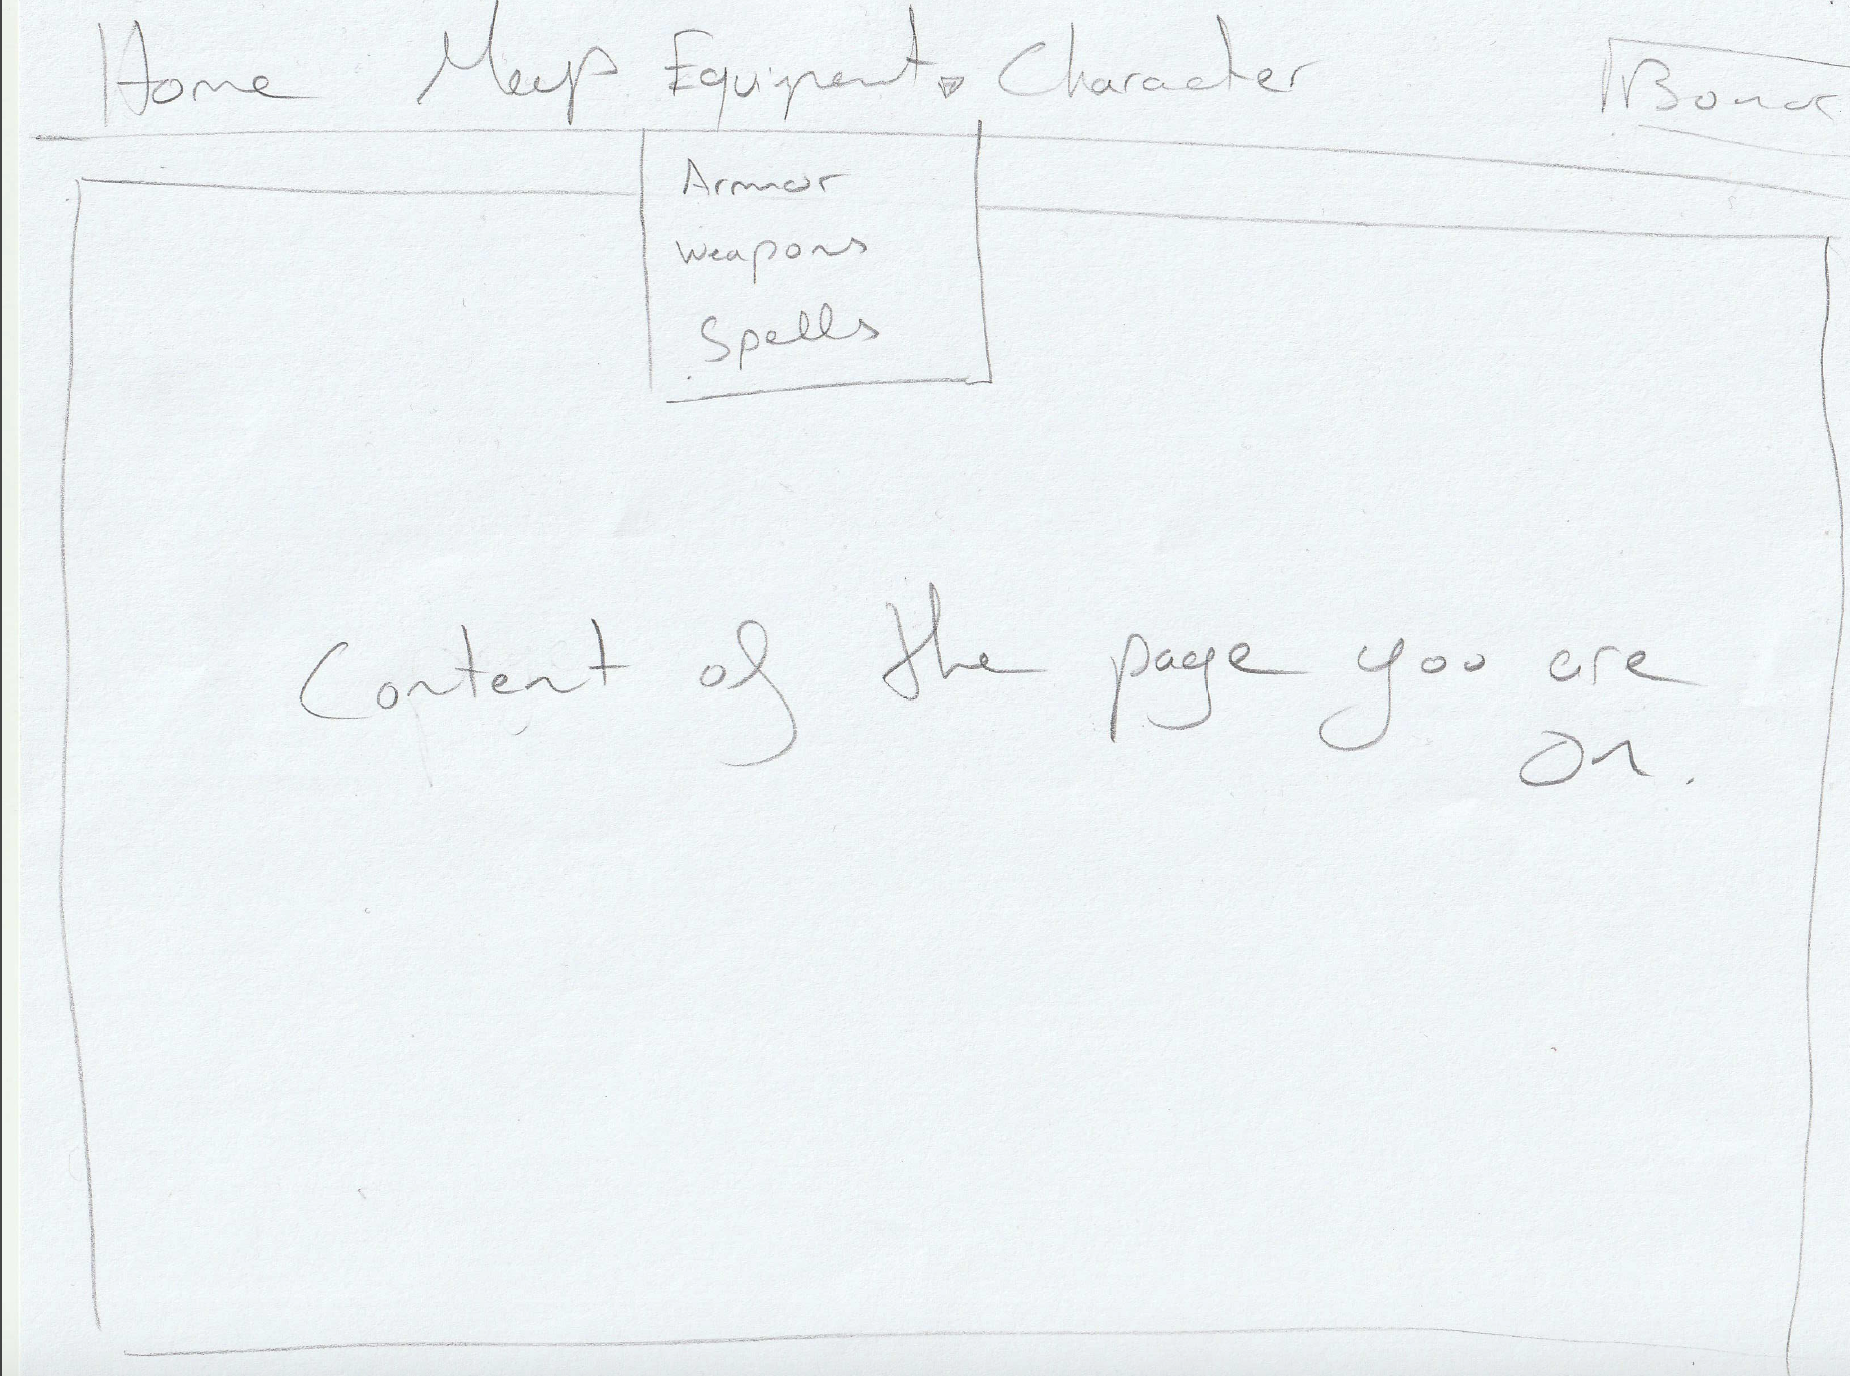 Home Map Equipment Character
Armor
Weapons
Spells
Content of the page you are
on.